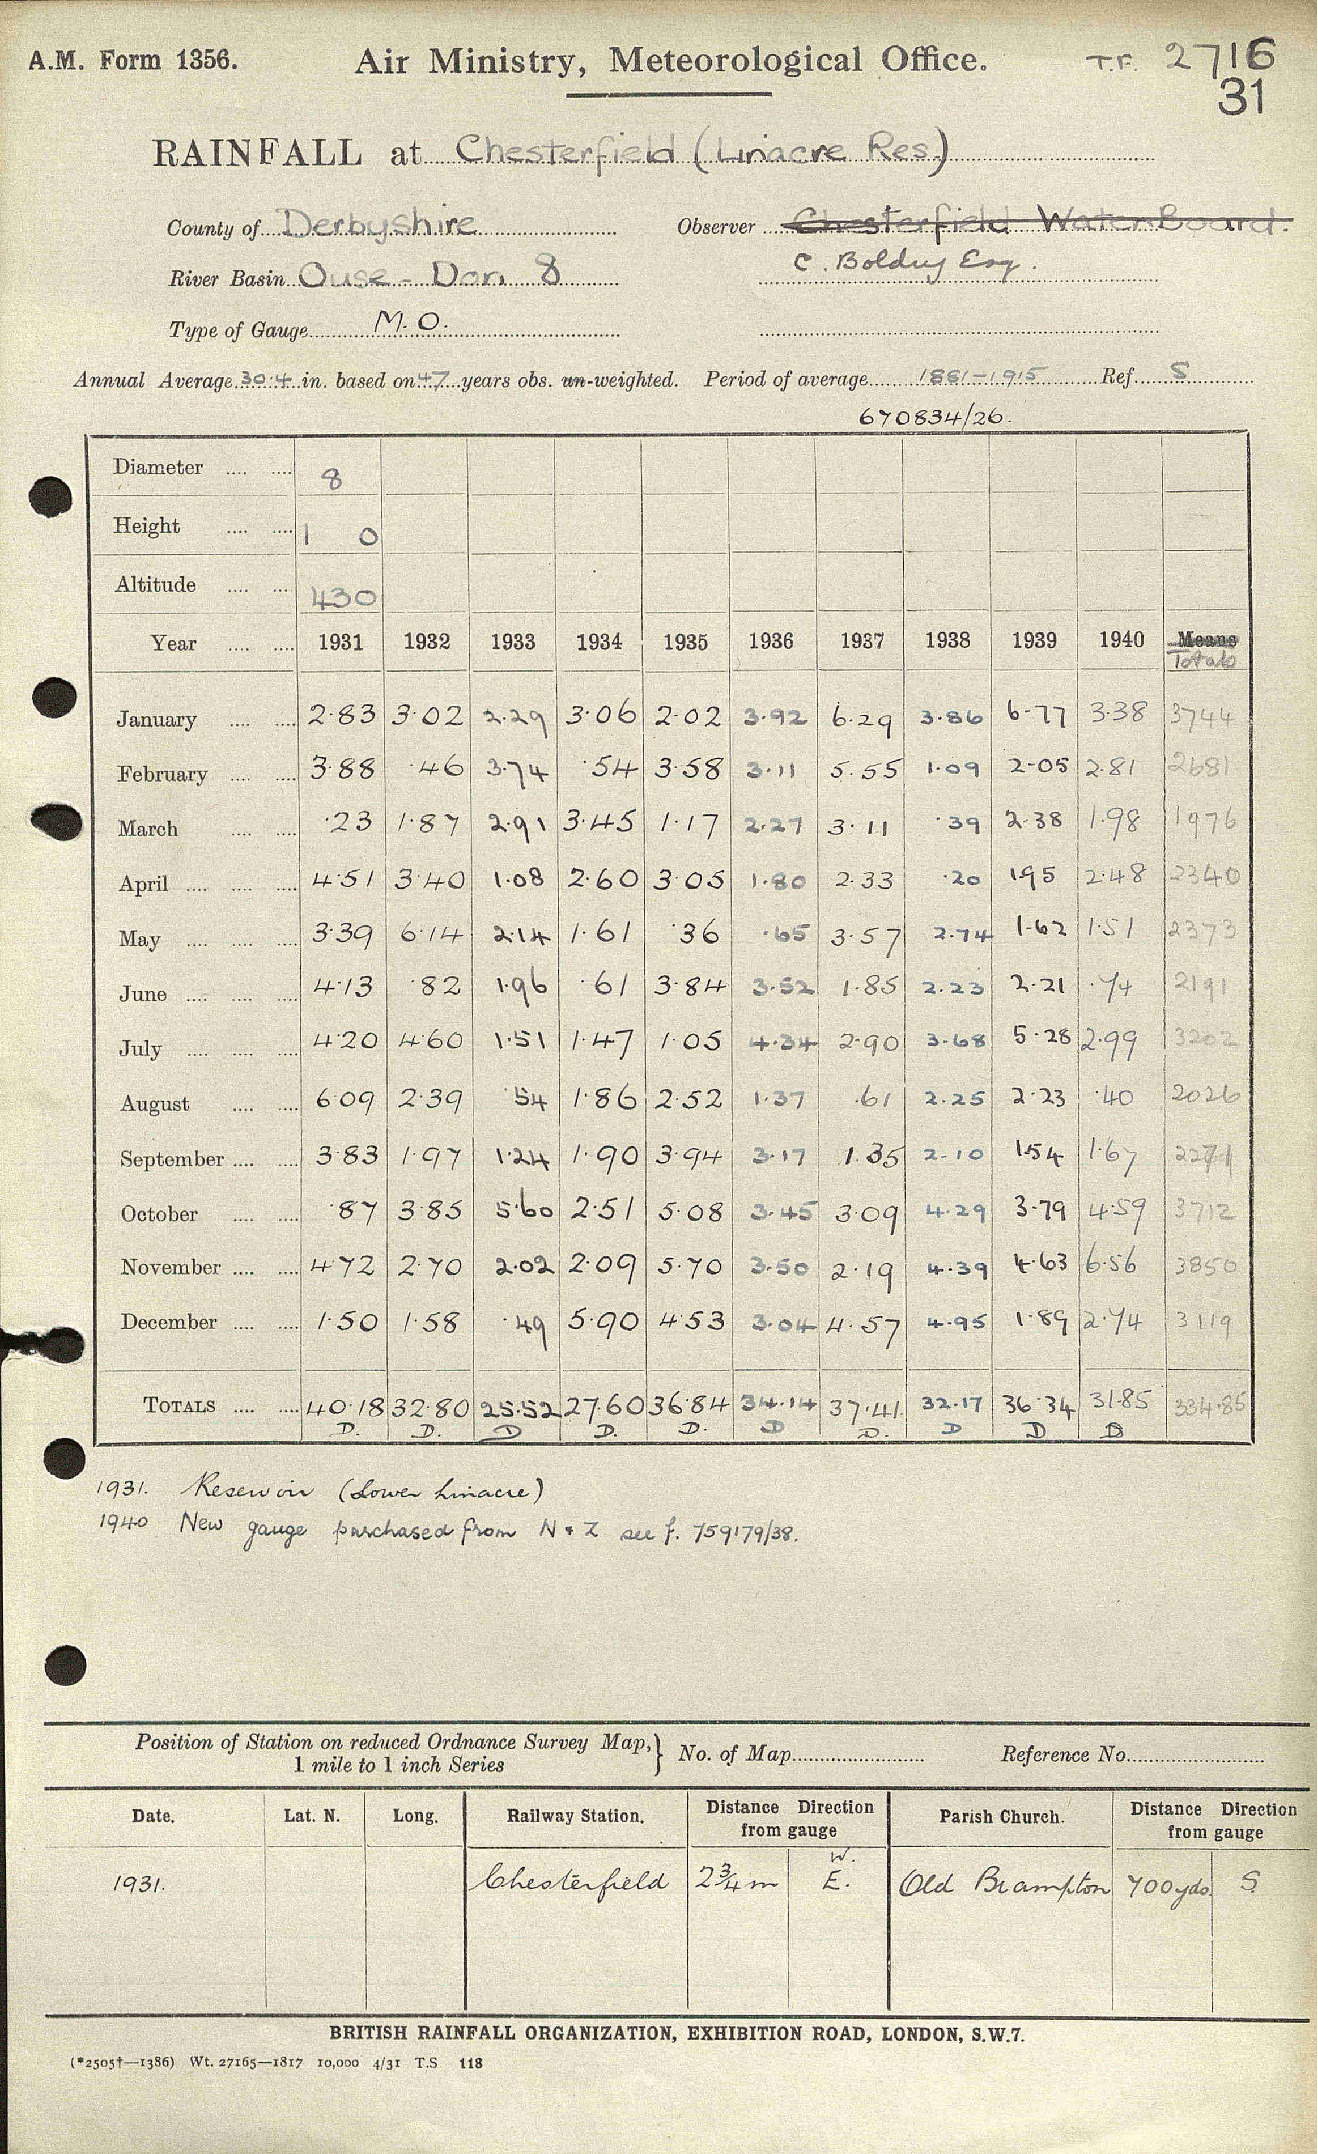 A.M. Form 1356. Air Ministry, Meteorological Office. T.F. 2716
31
RAINFALL at Chesterfield (Linacre Res.)
County of Derbyshire Observer Chesterfield Water Board.
C. Boldry Esq.
River Basin Ouse - Don 8
Type of Gauge M.O.
Annual Average 30.4 in. based on 47 years obs. un-weighted. Period of average 1881-1915 Ref. S
670834/26.
Diameter 8
Height 1 0
Altitude 430
Year 1931 1932 1933 1934 1935 1936 1937 1938 1939 1940 Means Totals
January 2.83 3.02 2.29 3.06 2.02 3.92 6.29 3.86 6.77 3.38 3744
February 3.88 .46 3.74 .54 3.58 3.11 5.55 1.09 2.05 2.81 2681
March .23 1.87 2.91 3.45 1.17 2.27 3.11 .39 2.38 1.98 1976
April 4.51 3.40 1.08 2.60 3.05 1.80 2.33 .20 1.95 2.48 2340
May 3.39 6.14 2.14 1.61 .36 .65 3.57 2.74 1.62 1.51 2373
June 4.13 .82 1.96 .61 3.84 3.52 1.85 2.23 2.21 .74 2191
July 4.20 4.60 1.51 1.47 1.05 4.34 2.90 3.68 5.28 2.99 3202
August 6.09 2.39 .54 1.86 2.52 1.37 .61 2.25 2.23 .40 2026
September 3.83 1.97 1.24 1.90 3.94 3.17 1.35 2.10 1.54 1.67 2271
October .87 3.85 5.60 2.51 5.08 3.45 3.09 4.29 3.79 4.59 3712
November 4.72 2.70 2.02 2.09 5.70 3.50 2.19 4.39 4.63 6.56 3850
December 1.50 1.58 .49 5.90 4.53 3.04 4.57 4.95 1.89 2.74 3119
TOTALS 40.18 32.80 25.52 27.60 36.84 34.14 37.41 32.17 36.34 31.85 334.85
D. D. D D. D. D D. D D D
1931. Reservoir (Lower Linacre)
1940 New gauge purchased from N & Z see f. 759179/38.
Position of Station on reduced Ordnance Survey Map, 1 mile to 1 inch Series } No. of Map Reference No.
Date. Lat. N. Long. Railway Station. Distance Direction from gauge Parish Church. Distance Direction from gauge
W.
1931. Chesterfield 2¾ m E. Old Brampton 700 yds. S.
BRITISH RAINFALL ORGANIZATION, EXHIBITION ROAD, LONDON, S.W.7.
(*2505†—1386) Wt. 27165—1817 10,000 4/31 T.S 118